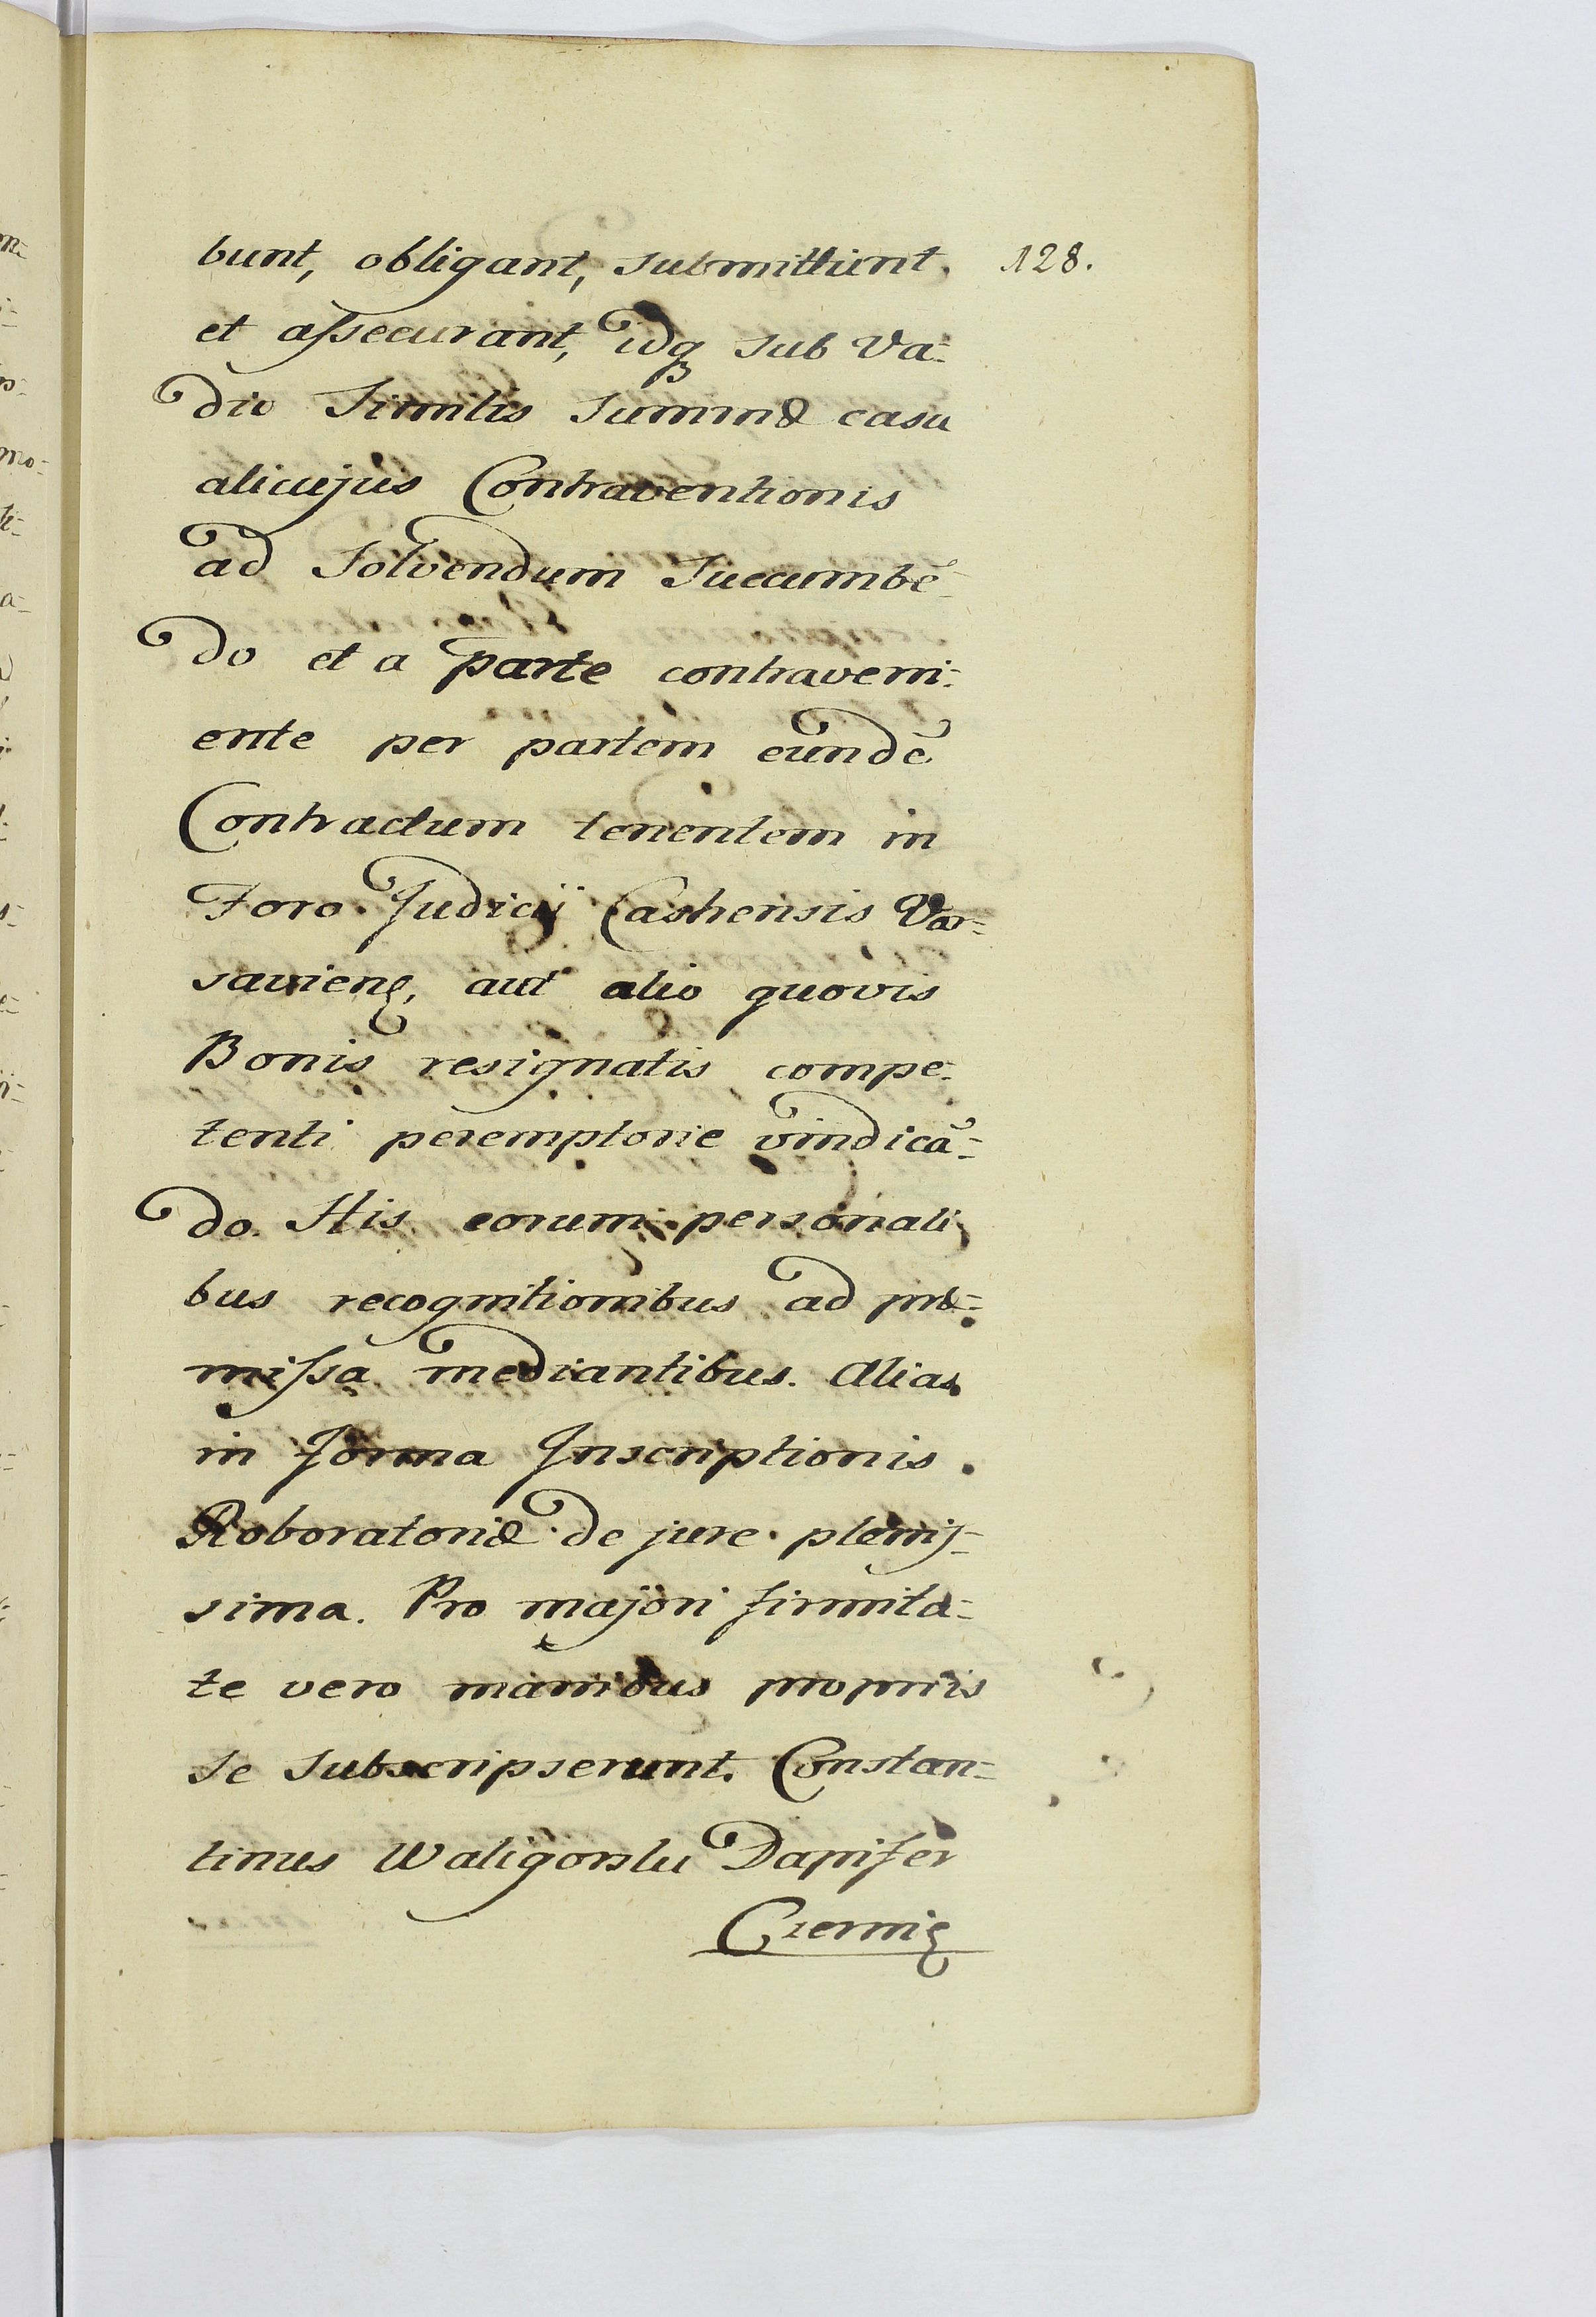 128.
bunt, obligant, submittunt
et assecurant, idq sub Va-
dio Similis Summæ casu
alicujus Contraventionis
ad Solvendum Succumbē-
do et a parte contraveni-
ente per partem eundē
Contractum tenentem in
Foro Judicij Castrensis Var-
savieng, aut alio quovis
Bonis resignatis compe-
tenti peremptorie vindicā-
do. His eorum personali
bus recognitionibus ad præ-
missa mediantibus. Alias
in forma Inscriptionis
Roboratoriæ de jure plenis-
sima. Pro majori firmita-
te vero manibus proprijs
se subscripserunt. Constan-
tinus Waligorski Dapifer
Czernig